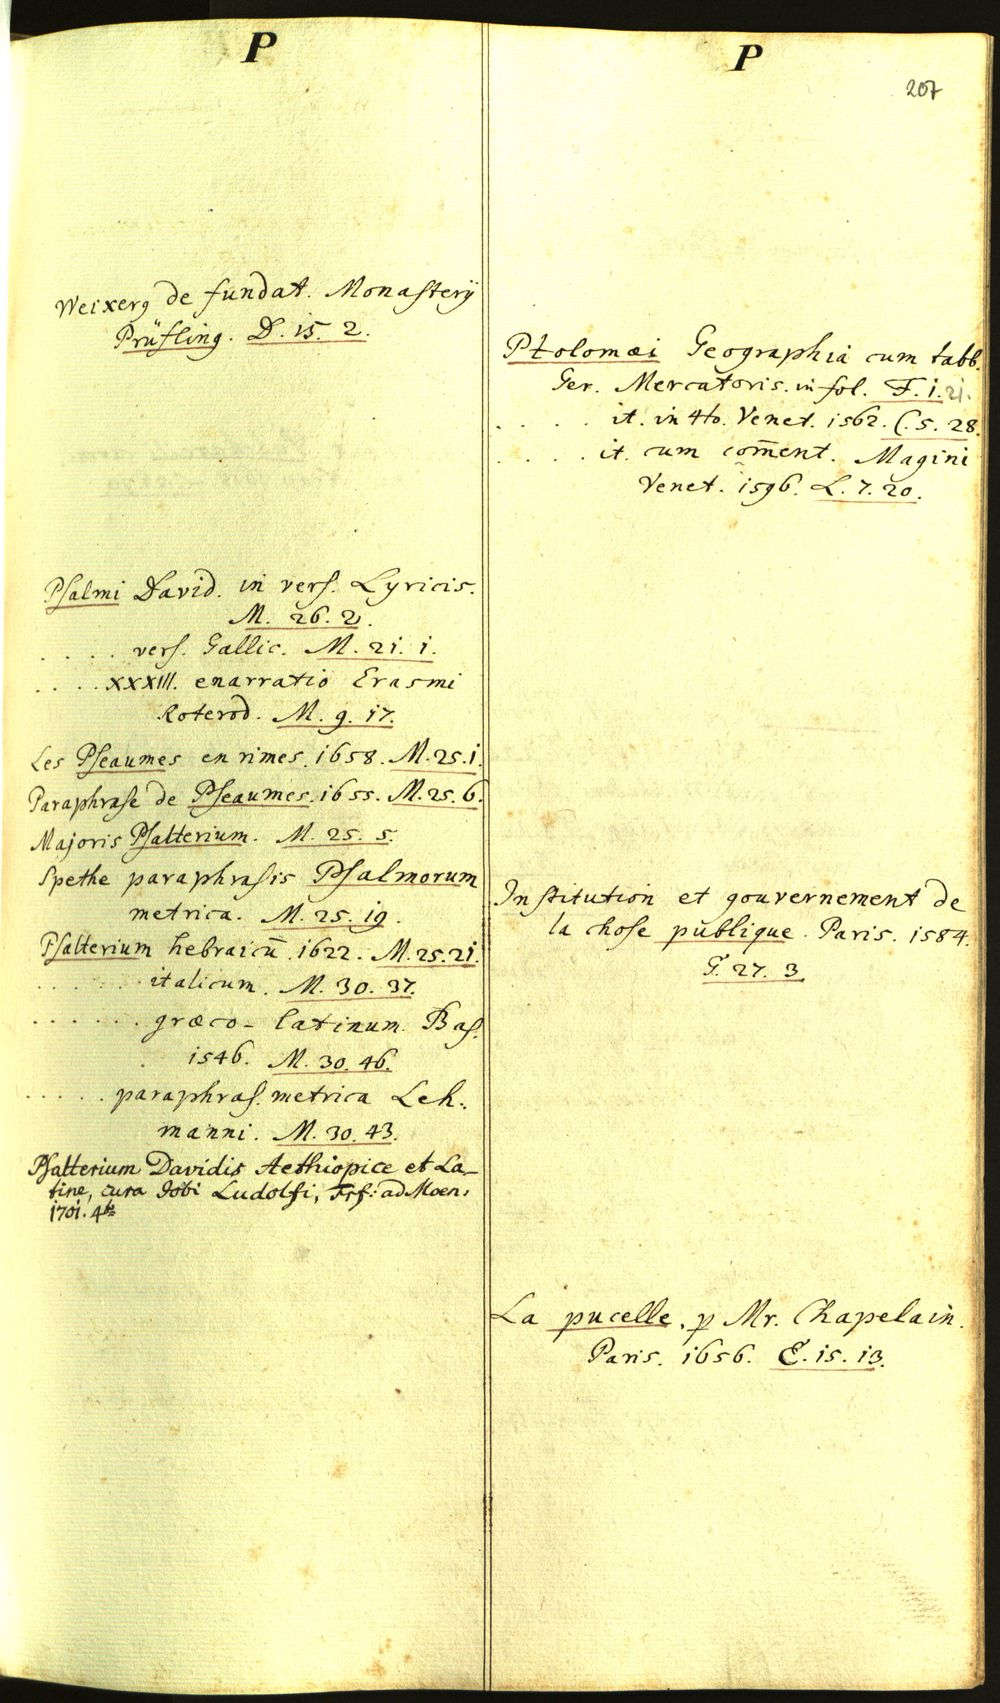 P
Weixerg de fundat. Monasterÿ
Prüfling. D. 15. 2.
Psalmi David. in vers. Lyricis.
M. 26. 2.
. . . . vers. Gallic. M. 21. 1.
. . . . XXXIII. enarratio Erasmi
Roterod. M. 9. 17.
Les Pseaumes en rimes. 1658. M. 25. 1.
Paraphrase de Pseaumes. 1655. M. 25. 6.
Majoris Psalterium. M. 25. 5.
Spethe paraphrasis Psalmorum
metrica. M. 25. 19.
Psalterium hebraicū. 1622. M. 25. 21.
. . . . . . italicum. M. 30. 37.
. . . . . . . græco-latinum. Bas.
1546. M. 30. 46.
. . . . . paraphras. metrica Leh:
manni. M. 30. 43.
Psalterium Davidis Aethiopice et La-
tine, cura Jobi Ludolfi, Frf: ad Moen:
1701. 4to
P
207
Ptolomæi Geographia cum tabb.
Ger. Mercatoris. in fol. F. 1. 21.
. . . . it. in 4to. Venet. 1562. C. 5. 28.
. . . . it. cum com̄ent. Magini
Venet. 1596. L. 7. 20.
Institution et gouvernement de
la chose publique. Paris. 1584.
G. 27. 3.
La pucelle. p Mr. Chapelain.
Paris. 1656. E. 15. 13.